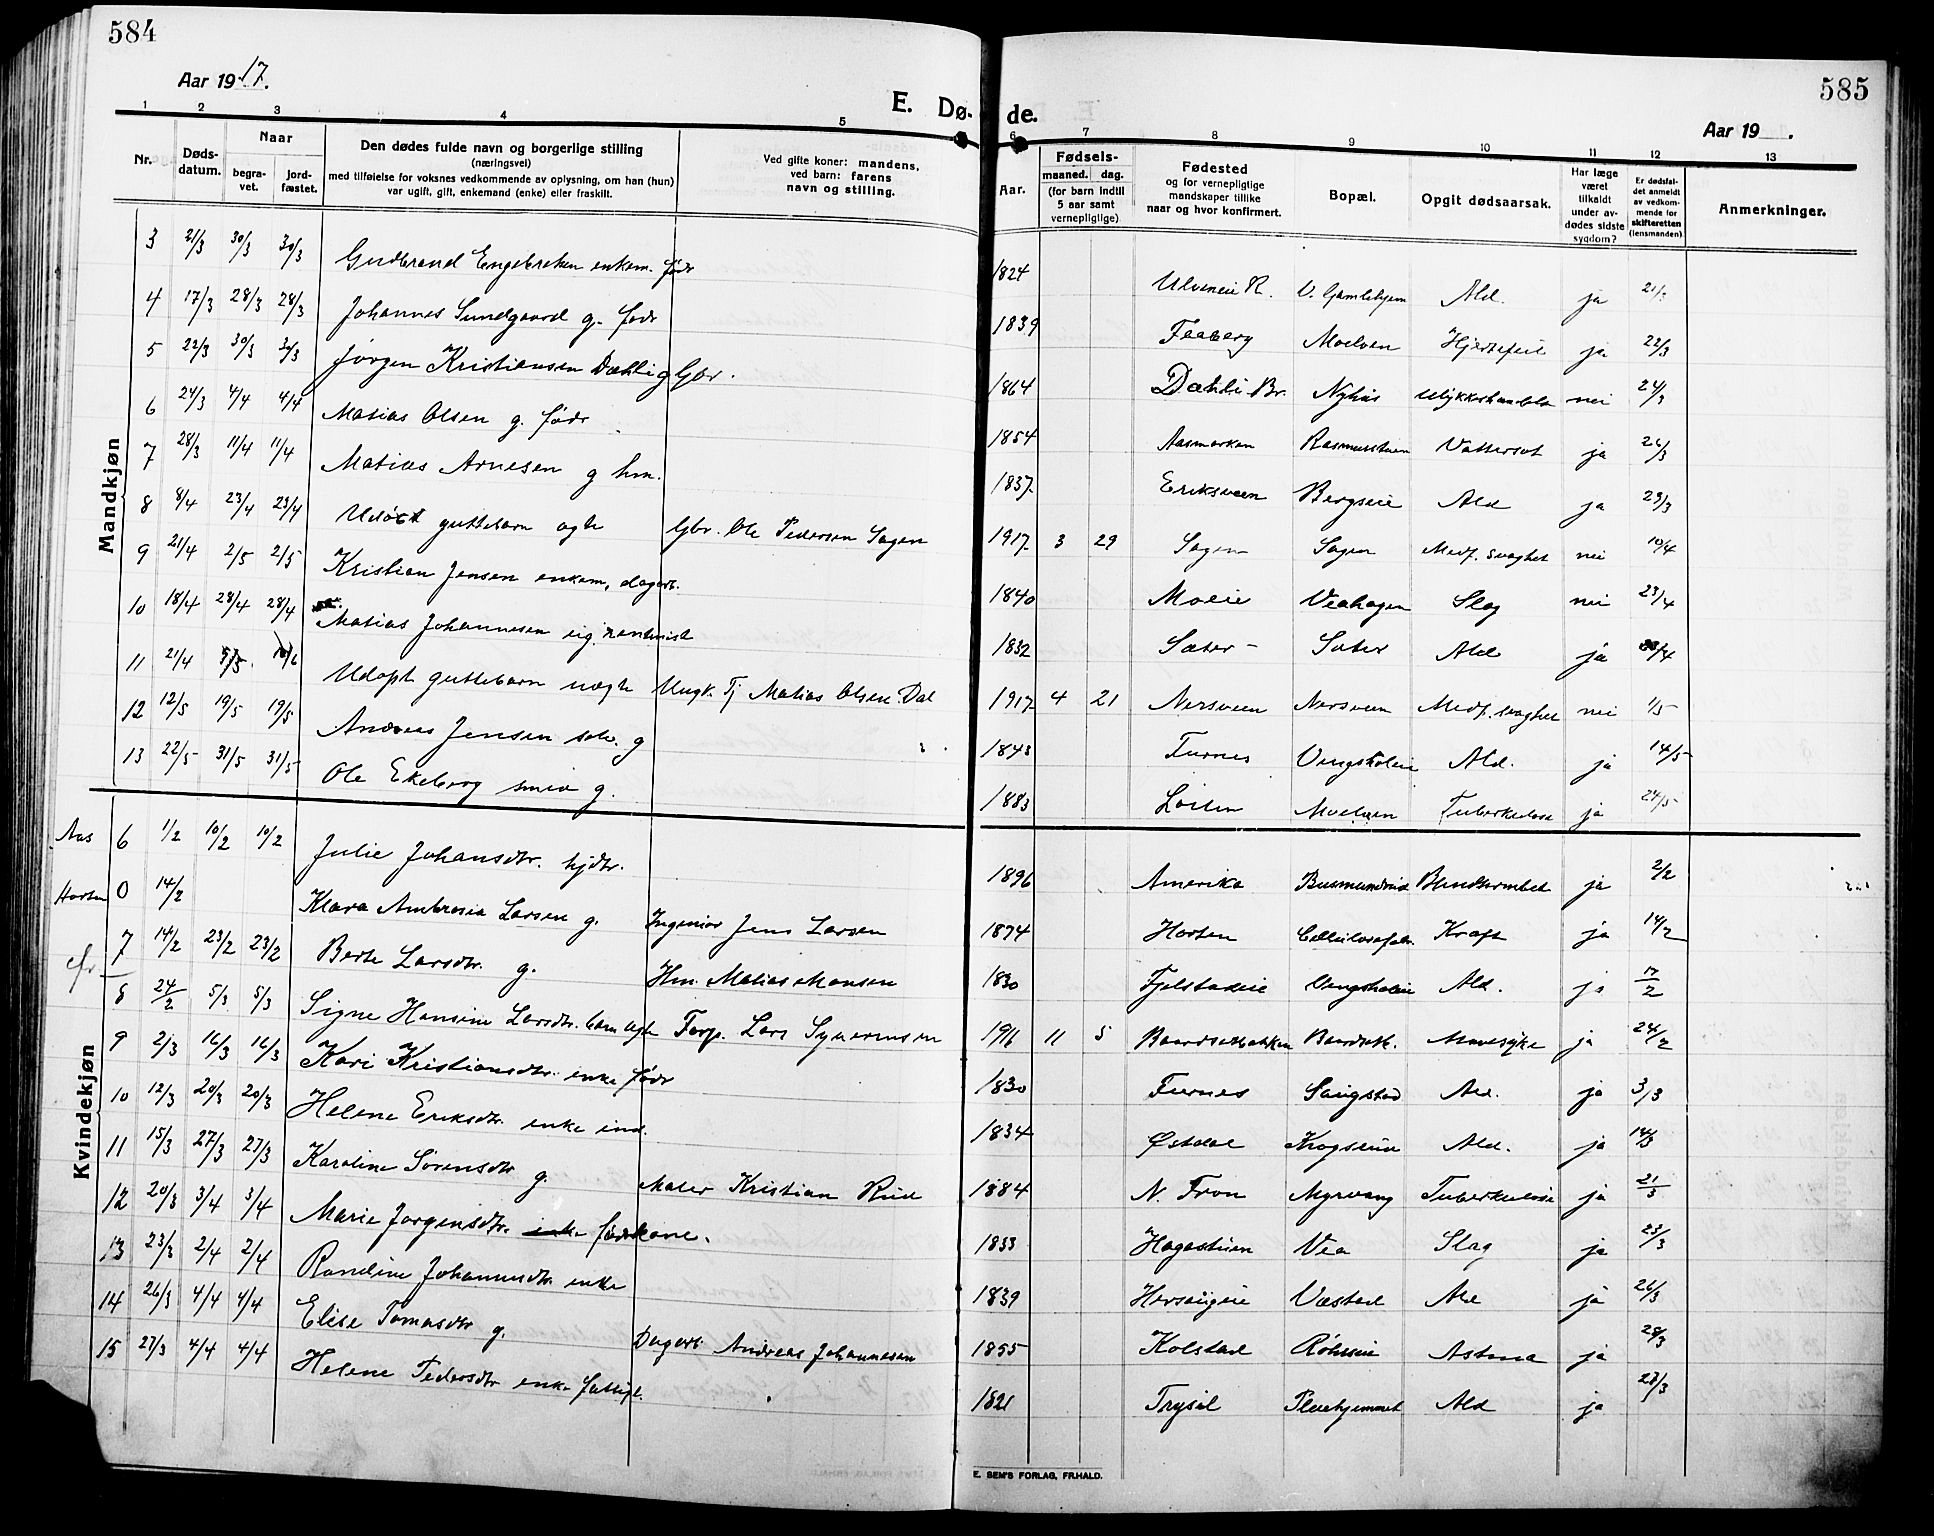 584
585
Aar 1917.
E. Dø- de.
Aar 19 .
1 2 3 4 5 6 7 8 9 10 11 12 13
Nr.
Døds-datum.
Naar
begra-vet.
jord-fæstet.
Den dødes fulde navn og borgerlige stilling
(næringsvei)
med tilføielse for voksnes vedkommende av oplysning, om han (hun)
var ugift, gift, enkemand (enke) eller fraskilt.
Ved gifte koner: mandens,
ved barn: farens
navn og stilling.
Aar.
Fødsels-
maaned. dag.
(for barn indtil
5 aar samt
vernepligtige)
Fødested
og for vernepligtige
mandskaper tillike
naar og hvor konfirmert.
Bopæl.
Opgit dødsaarsak.
Har læge
været
tilkaldt
under av-
dødes sidste
sygdom?
Er dødsfal-
det anmeldt
av vedkom-
mende for
skifteretten
(lensmanden)
Anmerkninger.
Mandkjøn
3 21/3 30/3 30/3 Gudbrand Engebretsen enkem. födr 1824 Ulveneie R. V. Gamlehjem Ald. ja 21/3
4 17/3 28/3 28/3 Johannes Sundgaard g. födr 1839 Faaberg Moelven Hjertefeil ja 22/3
5 22/3 30/3 30/3 Jørgen Kristiansen Dæhli g Gbr. 1864 Dæhli Br. Nyhus Ulykkeshændelse nei 24/3
6 24/3 4/4 4/4 Matias Olsen g. födr 1854 Aasmarken Rasmusstuen Vattersot ja 26/3
7 28/3 11/4 11/4 Matias Arnesen g hm. 1837 Eriksveen Bergseie Ald ja 29/3
8 8/4 23/4 23/4 Udöpt guttebarn ægte Gbr. Ole Pedersen Sagen 1917 3 29 Sagen Sagen Medf. svaghet nei 10/4
9 21/4 2/5 2/5 Kristian Jensen enkem, dagarb. 1840 Moeie Veahagen Slag nei 23/4
10 18/4 28/4 28/4 Matias Johannesen ug. 1832 Sæter Sæter Ald ja
11 21/4 Udöpt guttebarn uægte Ungk. Tj Matias Olsen Dal 1917 4 21 Nersveen Nersveen Medf. svaghet nei 1/5
12 12/5 19/5 19/5 Andreas Jensen selv. g 1843 Furnes Vengsholeie Ald. ja 14/5
13 22/5 31/5 31/5 Ole Ekeberg smed g. 1883 Löiten Moelven Tuberkulose ja 24/5
Kvindekjøn
Aas 6 1/2 10/2 10/2 Julie Johansdtr. hjdtr. 1896 Amerika Busmundrud Blindtarmbet ja 2/2
Horten 0 14/2 Klara Ambrosia Larsen g. Ingeniør Jens Larsen 1874 Horten Cellulosefabr. Kræft ja 14/2
7 14/2 23/2 23/2 Berte Larsdtr. g. Hm. Matias Monsen 1830 Fjelstadeie Vengsholeie Ald. ja 17/2
8 24/2 5/3 5/3 Signe Hansine Larsdtr. barn ægte Forp. Lars Syversen 1916 11 5 Baardsetbakken Baardset. Mavesyke ja 24/2
9 2/3 16/3 16/3 Kari Kristiansdtr. enke födr 1830 Furnes Saugstad Ald. ja 3/3
10 12/3 20/3 20/3 Helene Eriksdtr. enke ind. 1834 Østdal Krogseie Ald. ja 14/3
11 15/3 27/3 27/3 Karoline Sørensdtr g. Maler Kristian Rud 1884 N. Fron Myrvang Tuberkulose ja 21/3
12 20/3 3/4 3/4 Marie Jørgensdtr. enke födrkone. 1833 Hagastuen Vea Slag ja 23/3
13 23/3 2/4 2/4 Randine Johannesdtr. enke 1839 Hersaugeie Væstad Ald ja 26/3
14 26/3 4/4 4/4 Elise Tomasdtr g. Dagarb. Andreas Johannesen 1855 Kolstad Röhneie Astma ja 28/3
15 27/3 4/4 4/4 Helene Pedersdtr enke fattigl. 1821 Trysil Pleiehjemmet Ald ja 28/3
E. SEM'S FORLAG, FR.HALD.